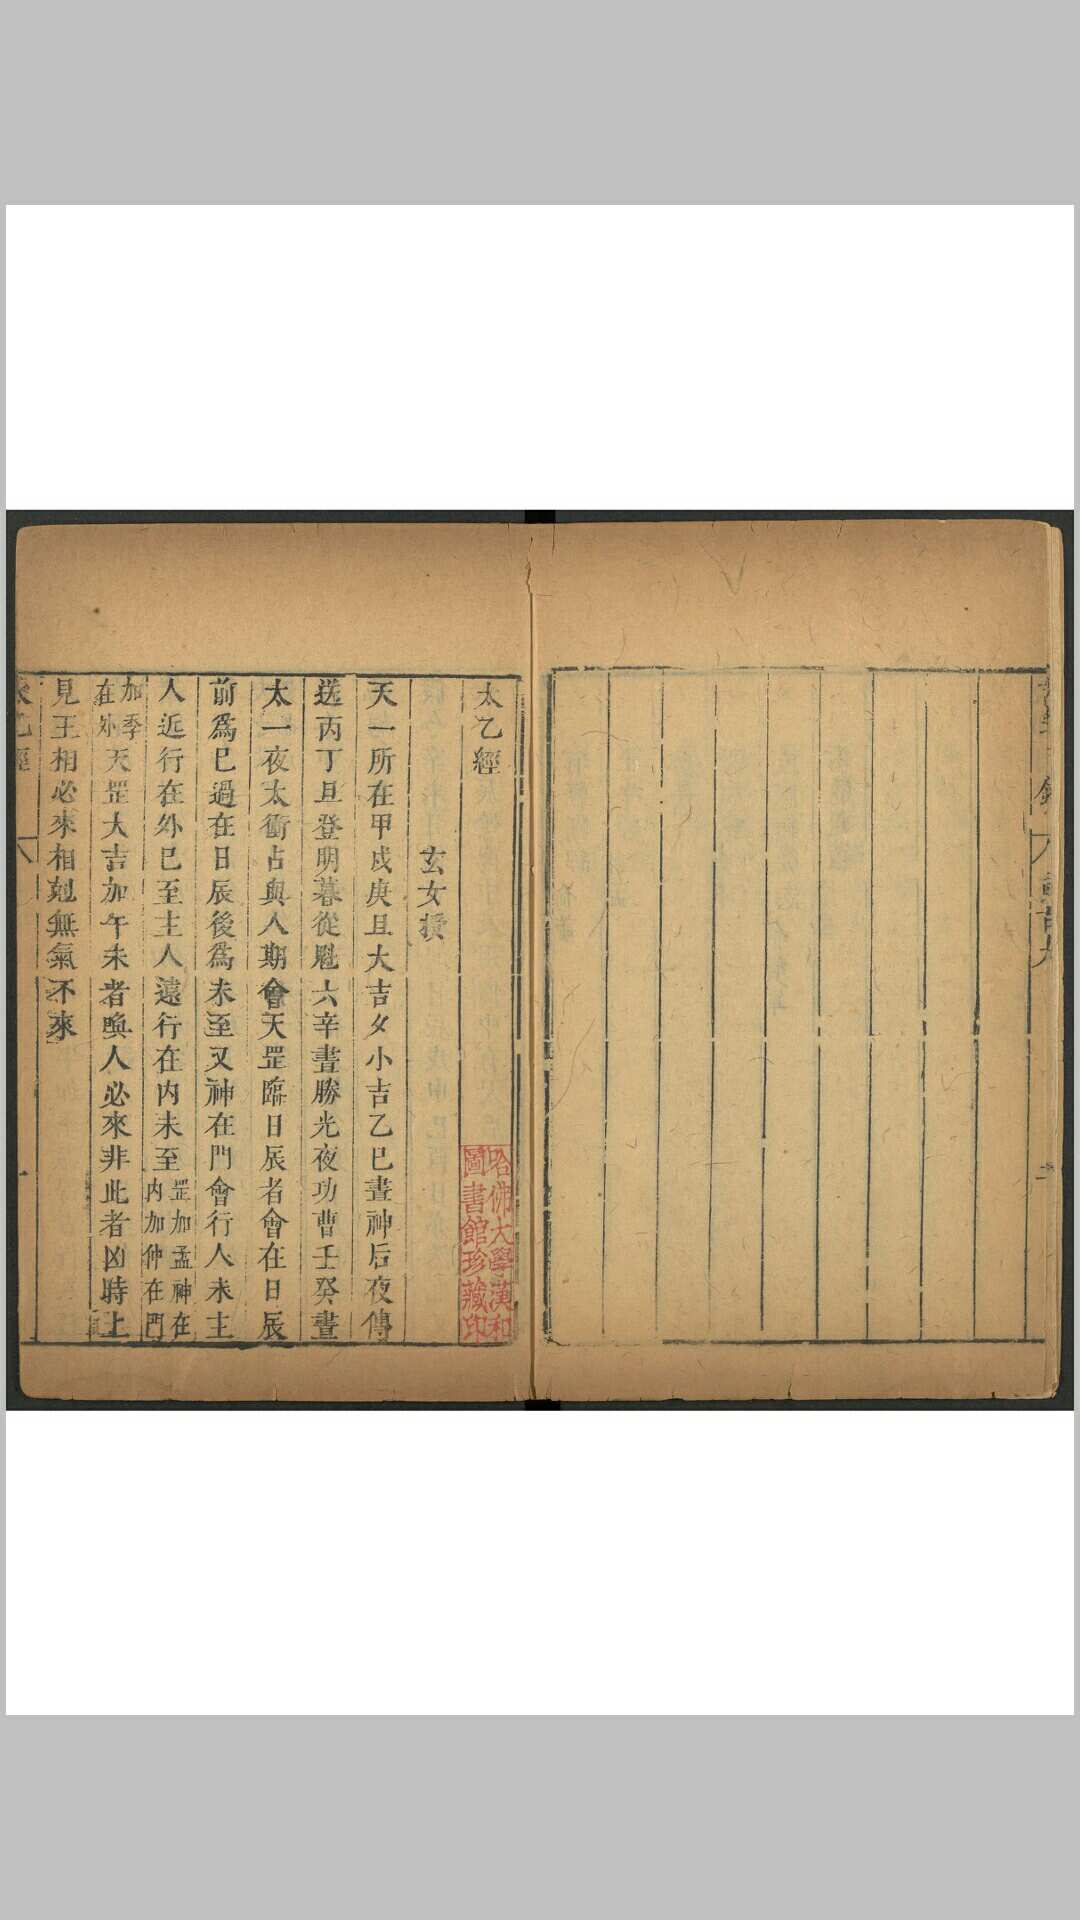 太乙經
玄女授
天一所在甲戊庚旦大吉夕小吉乙巳晝神后夜傳
送丙丁旦登明暮從魁六辛晝勝光夜功曹壬癸晝
太一夜太衝占與人期會天罡臨日辰者會在日辰
前爲已過在日辰後爲未至又神在門會行人未主
人近行在外已至主人遠行在内未至罡加孟神在
内加仲在門
加季
在外天罡大吉加午未者喚人必來非此者凶時上
見王相必來相剋無氣不來
太乙經
一
哈佛大學漢和
圖書館珍藏印